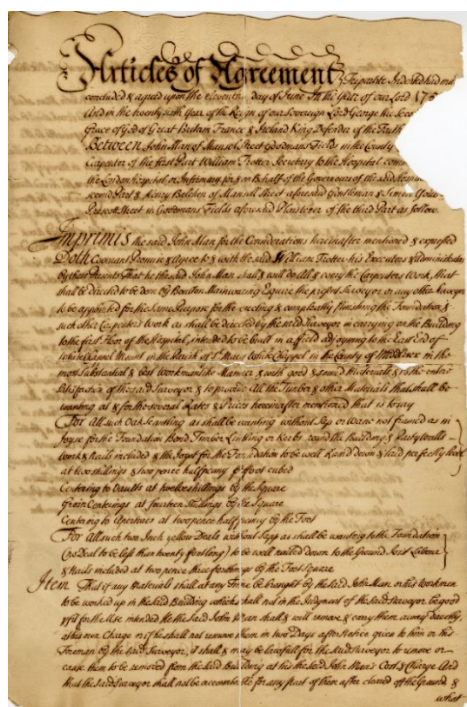 Articles of Agreement Tripartite Indented had made
concluded & agreed upon the eleventh day of June In the Year of our Lord 175
And in the twenty sixth Year of the Reign of our Sovereign Lord George the Seco
Grace of God of Great Britain France & Ireland King Defender of the Faith
Between John Man of Mansel Street Goodmans Fields in the County of
Carpenter of the first Part William Trotter Secretary to the Hospital comm
the London Hospital or Infirmary for & on Behalf of the Governours of the said
second Part & Henry Belchier of Mansell Street aforesaid Gentleman & Simeon
Prescott Street in Goodmans Fields aforesaid Plaisterer of the third Part as follow
Imprimis the said John Man for the Considerations hereinafter mentioned & expressed
Doth Covenant Promise & agree to & with the said William Trotter his Executors & Administrators
by these Presents That he the said John Man shall & will do All & every the Carpenters Work that
shall be directed to be done by Boulton Mainwaring Esquire the present Surveyor or any other Surveyor
to be appointed for the Same Purpose for the erecting & compleatly finishing the Foundation &
such other Carpenters Work as shall be directed by the said Surveyor in carrying on the Building
to the first Floor of the Hospital intended to be built in a field adjoyning to the East End of
White Chapel Mount in the Parish of St. Mary White Chappel in the County of Middlesex in the
most Substantial & best workmanlike Manner & with good & sound Materials & to the entire
Satisfaction of the said Surveyor & to provide All the Timber & other Materials that shall be
wanting at & for the several Rates & Prices hereinafter mentioned that is to say
For All such Oak Scantling as shall be wanting without Sap or Wane not framed as in
Joyse for the Foundation Bond Timber Linking or Kerbs round the Building & Party Walls
Work & Nails included & the Joyst for the Foundation to be well Ramd down & laid perfectly level
at two shillings & two pence halfpenny p foot cubed
Centering to Vaults at twelve shillings by the Square
Groin Centerings at fourteen Shillings by the Square
Centering to Apertures at twopence halfpenny by the Foot
For All such two Inch yellow Deals without Sapp as shall be wanting to the Foundation
(no Deal to be less than twenty feet long) to be well nailed down to the Ground Joist Labour
& Nails included at two pence three farthings by the Foot Square
Item That if any Materials shall at any Time be brought by the said John Man or his Workmen
to be worked up in the said Building which shall not in the Judgment of the said Surveyor be good
& fit for the Use intended He the said John Man shall & will remove & carry them away directly
at his own Charge or if he shall not remove them in two Days after Notice given to him or his
Foreman by the said Surveyor, it shall & may be lawfull for the said Surveyor to remove or
cause them to be removed from the said Building at his the said John Man's Cost & Charge And
that the said Surveyor shall not be accountable for any part of them after cleared off the Ground &
what